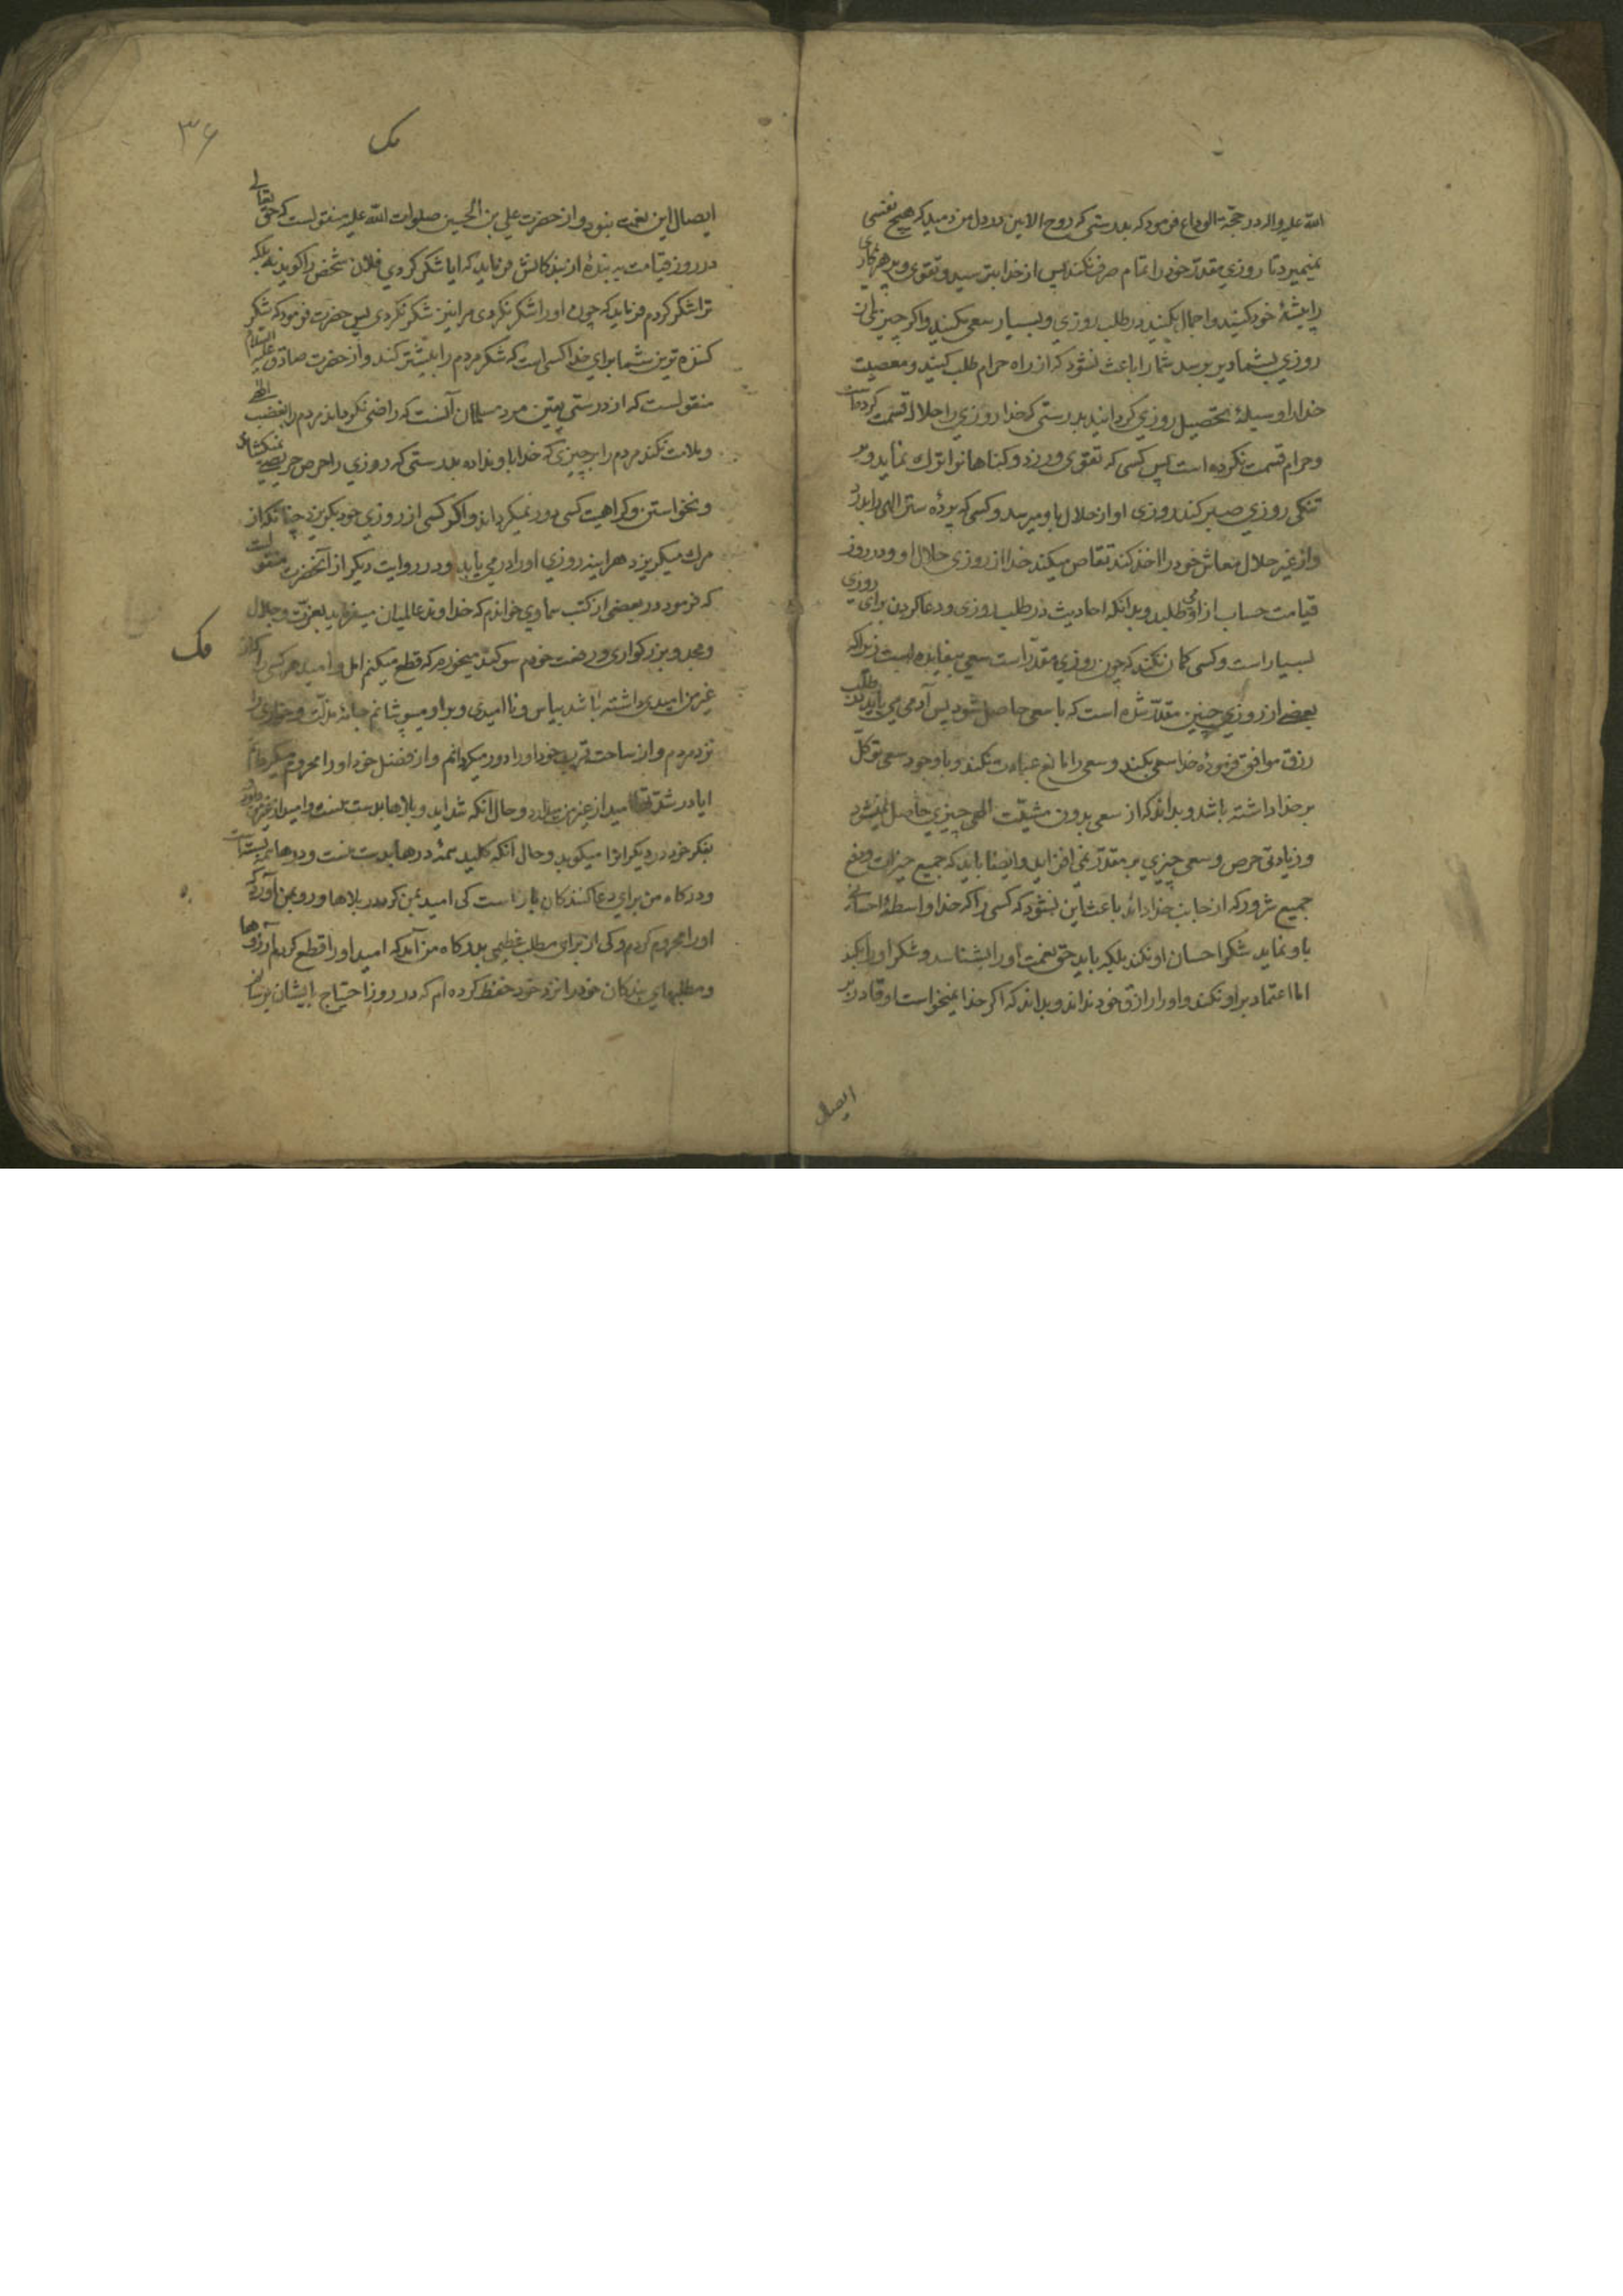 الله علیه واله در حجّة الوداع فرمود که بدرستی که روح الامین در دل من دمید که هیچ نفسی
نمیمیرد تا روزی مقدّر خود را تمام صرف نکند پس از خدا بترسید و تقوی و پرهیزکاری
را پیشهٔ خود کنید و اجمال بکنید در طلب روزی و بسیار سعی مکنید و اکر چیزی از
روزی بشما دیر برسد شما را باعث نشود که از راه حرام طلب کنید و معصیت
خدا را وسیلهٔ تحصیل روزی کردانید بدرستی که خدا روزی را حلال قسمت کرده است
و حرام قسمت نکرده است پس کسی که تقوی ورزد و کناهانرا ترك نماید و بر
تنکی روزی صبر کند روزی او از حلال باو میرسد و کسی که پردهٔ ستر الهی را بدرد
و از غیر حلال معاش خود را اخذ کند تقاص میکند خدا از روزی حلال او و در روز
قیامت حساب از او می طلبد و بدانکه احادیث در طلب روزی و دعا کردن برای روزی
بسیار است و کسی کمان نکند که چون روزی مقدّر است سعی بیفایده است زیرا که
بعضی از روزی چنین مقدّر شده است که با سعی حاصل شود پس آدمی می باید که در طلب
رزق موافق فرمودهٔ خدا سعی بکند و سعی را مانع عبادت نکند و با وجود سعی توکّل
بر خدا داشته باشد و بداند که از سعی بدون مشیّت الهی چیزی حاصل نمیشود
و زیادتی حرص و سعی چیزی بر مقدّر نمی افزاید و ایضا باید که جمیع خیرات و دفع
جمیع شرور که از جانب خدا داند باعث این نشود که کسی را که خدا واسطهٔ احسانی
باو نماید شکر احسان او نکند بلکه باید حق نعمت او را بشناسد و شکر او را بکند
اما اعتماد بر او نکند و او را رازق خود نداند و بداند که اکر خدا نمیخواست او قادر بر
ایصال
۳۶
مک
ایصال این نعمت نبود و از حضرت علی بن الحسین صلوات الله علیه منقولست که حق تعالی
در روز قیامت به بندهٔ از بندکانش فرماید که ایا شکر کردی فلان شخص را کوید نه بلکه
ترا شکر کردم فرماید که چون او را شکر نکردی مرا نیز شکر نکردی پس حضرت فرمود که شکر
کننده ترین شما برای خدا کسی است که شکر مردم را بیشتر کند و از حضرت صادق علیه السلام
منقولست که از درستی یقین مرد مسلمان آنست که راضی نکرداند مردم را بغضب الهی
و ملامت نکند مردم را بر چیزی که خدا باو نداده بدرستی که روزی را حرص حریصی نمیکشاند
و نخواستن و کراهیت کسی دور نمیکرداند و اکر کسی از روزی خود بکریزد چنانکه از
مرك میکریزد هراینه روزی او را در می یابد و در روایت دیکر از آنحضرت منقولست
که فرمود در بعضی از کتب سماوی خواندم که خداوند عالمیان میفرماید بعزّت و جلال
و مجد و بزرکواری و رفعت خودم سوکند میخورم که قطع میکنم امل و امید هر کسی را که از
مک
غیر من امیدی داشته باشد بیاس و ناامیدی و براو میپوشانم جامهٔ مذلّت و خواری را
نزد مردم و از ساحت قرب خود او را دور میکردانم و از فضل خود او را محروم میکردانم
ایا در شدّتها امید از غیر من میدارد و حال آنکه شداید و بلاها بدست منست و امید از غیر من دارد
بفکر خود در دیکرانرا میکوبد و حال آنکه کلید همهٔ درها بدست منست و درها همه بسته است
و درکاه من برای دعا کنندکان باز است کی امید بمن کرد در بلاها و رو بمن آورد که
او را محروم کردم و کی از برای مطلب عظیمی بدرکاه من آمد که امید او را قطع کردم آرزوها
و مطلبهای بندکان خود را نزد خود حفظ کرده ام که در روز احتیاج بایشان برسانم